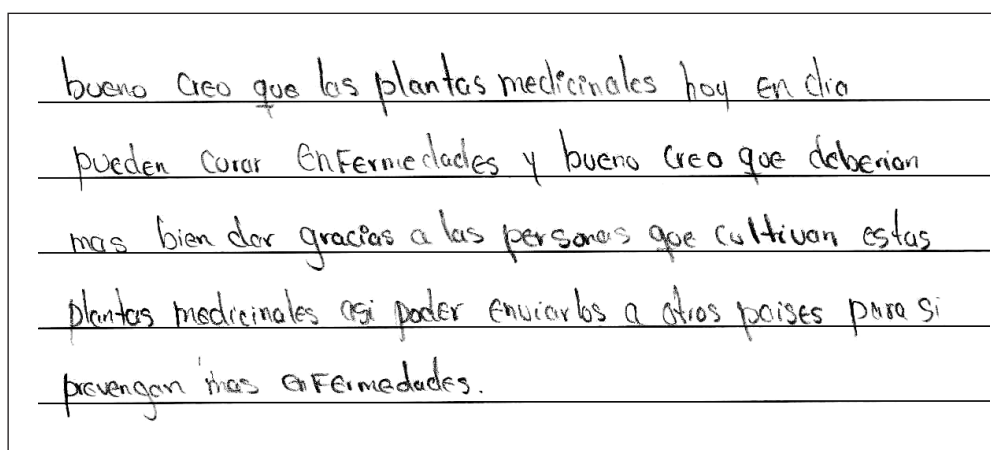 bueno creo que las plantas medicinales hoy en dia
pueden curar enfermedades y bueno creo que deberian
mas bien dar gracias a las personas que cultivan estas
plantas medicinales asi poder enviarlos a otros paises para si
prevengan mas enfermedades.